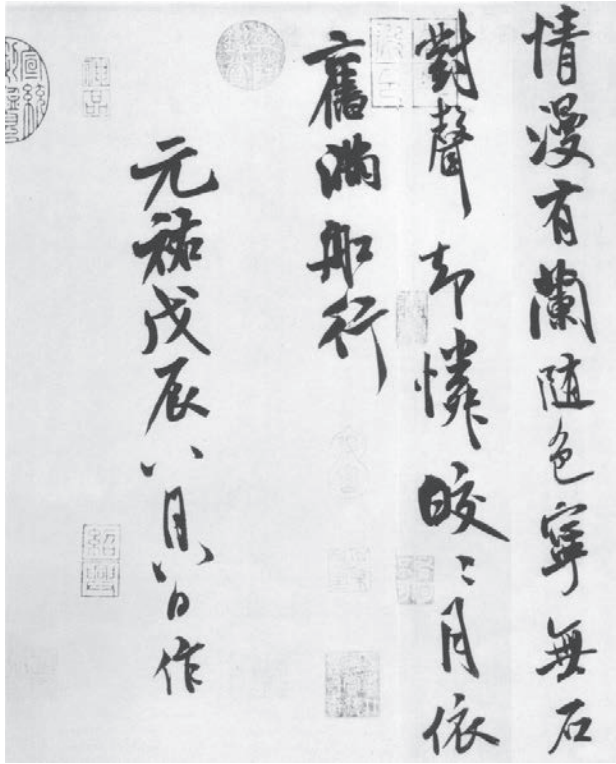 情漫有蘭随色寧無石
對聲却憐皎〻月依
舊滿船行
元祐戊辰八月八日作
紹興